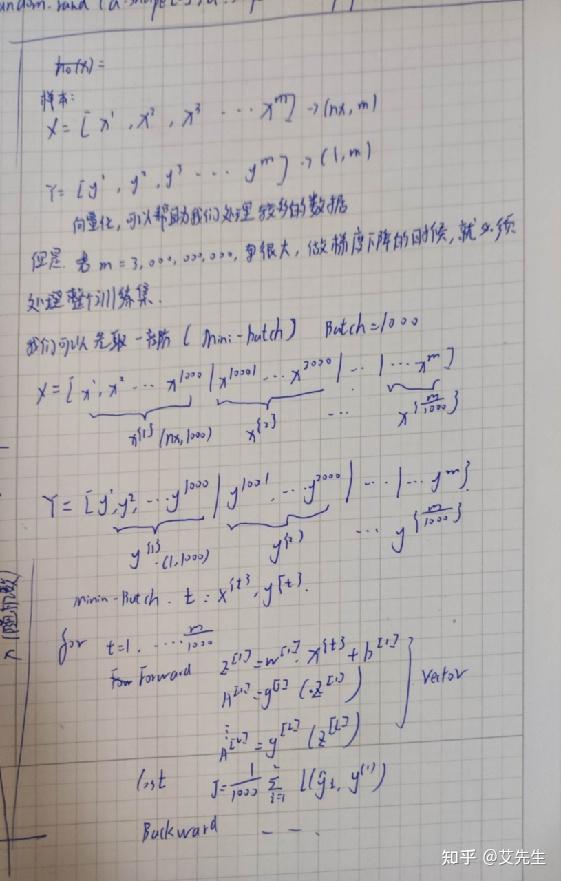 h₀(x)=
样本:
X = [ x¹ , x² , x³ ⋯ xᵐ ] → (nx, m)
Y = [ y¹ , y² , y³ ⋯ yᵐ ] → (1, m)
向量化, 可以帮助我们处理较多的数据
但是 若 m = 3,000,000,000, 很大, 做梯度下降的时候, 就必须
处理整个训练集.
我们可以先取一部分 ( Mini-batch ) Batch = 1000
X = [ x¹, x² ⋯ x¹⁰⁰⁰ | x¹⁰⁰¹ ⋯ x²⁰⁰⁰ | ⋯ | ⋯ xᵐ ]
x^{1} (nx, 1000) x^{2} ⋯ x^{m/1000}
Y = [ y¹, y², ⋯ y¹⁰⁰⁰ | y¹⁰⁰¹, ⋯ y²⁰⁰⁰ | ⋯ | ⋯ yᵐ ]
y^{1} · (1, 1000) y^{2} ⋯ y^{m/1000}
minin-Batch. t : x^{t}, y^{t}.
for t=1. ⋯⋯ m/1000
Forward Z^[1] = w^[1] · x^{t} + b^[1]
A^[1] = g^[1] ( Z^[1] ) Vector
⋮
A^[L] = g^[L] ( Z^[L] )
Cost J = 1/1000 Σ i=1 l( ŷ₁, y^(i) )
Backward – – –.
知乎 @艾先生